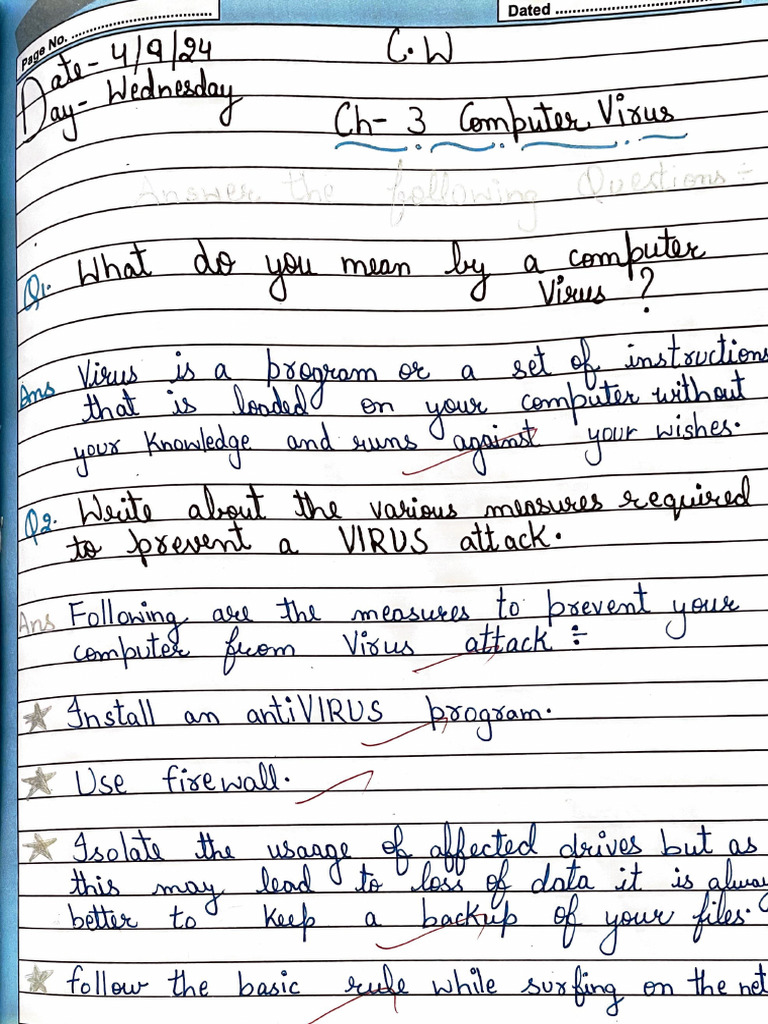 Page No. ................................
Dated ................................
Date - 4/9/24
C.W
Day - Wednesday
Ch - 3 Computer Virus
Answer the following Questions :-
Q1. What do you mean by a computer
Virus ?
Ans Virus is a program or a set of instructions
that is loaded on your computer without
your knowledge and runs against your wishes.
Q2. Write about the various measures required
to prevent a VIRUS attack.
Ans Following are the measures to prevent your
computer from Virus attack :-
★ Install an antiVIRUS program.
★ Use firewall.
★ Isolate the usage of affected drives but as
this may lead to loss of data it is alway
better to keep a backup of your files.
★ follow the basic rule while surfing on the net